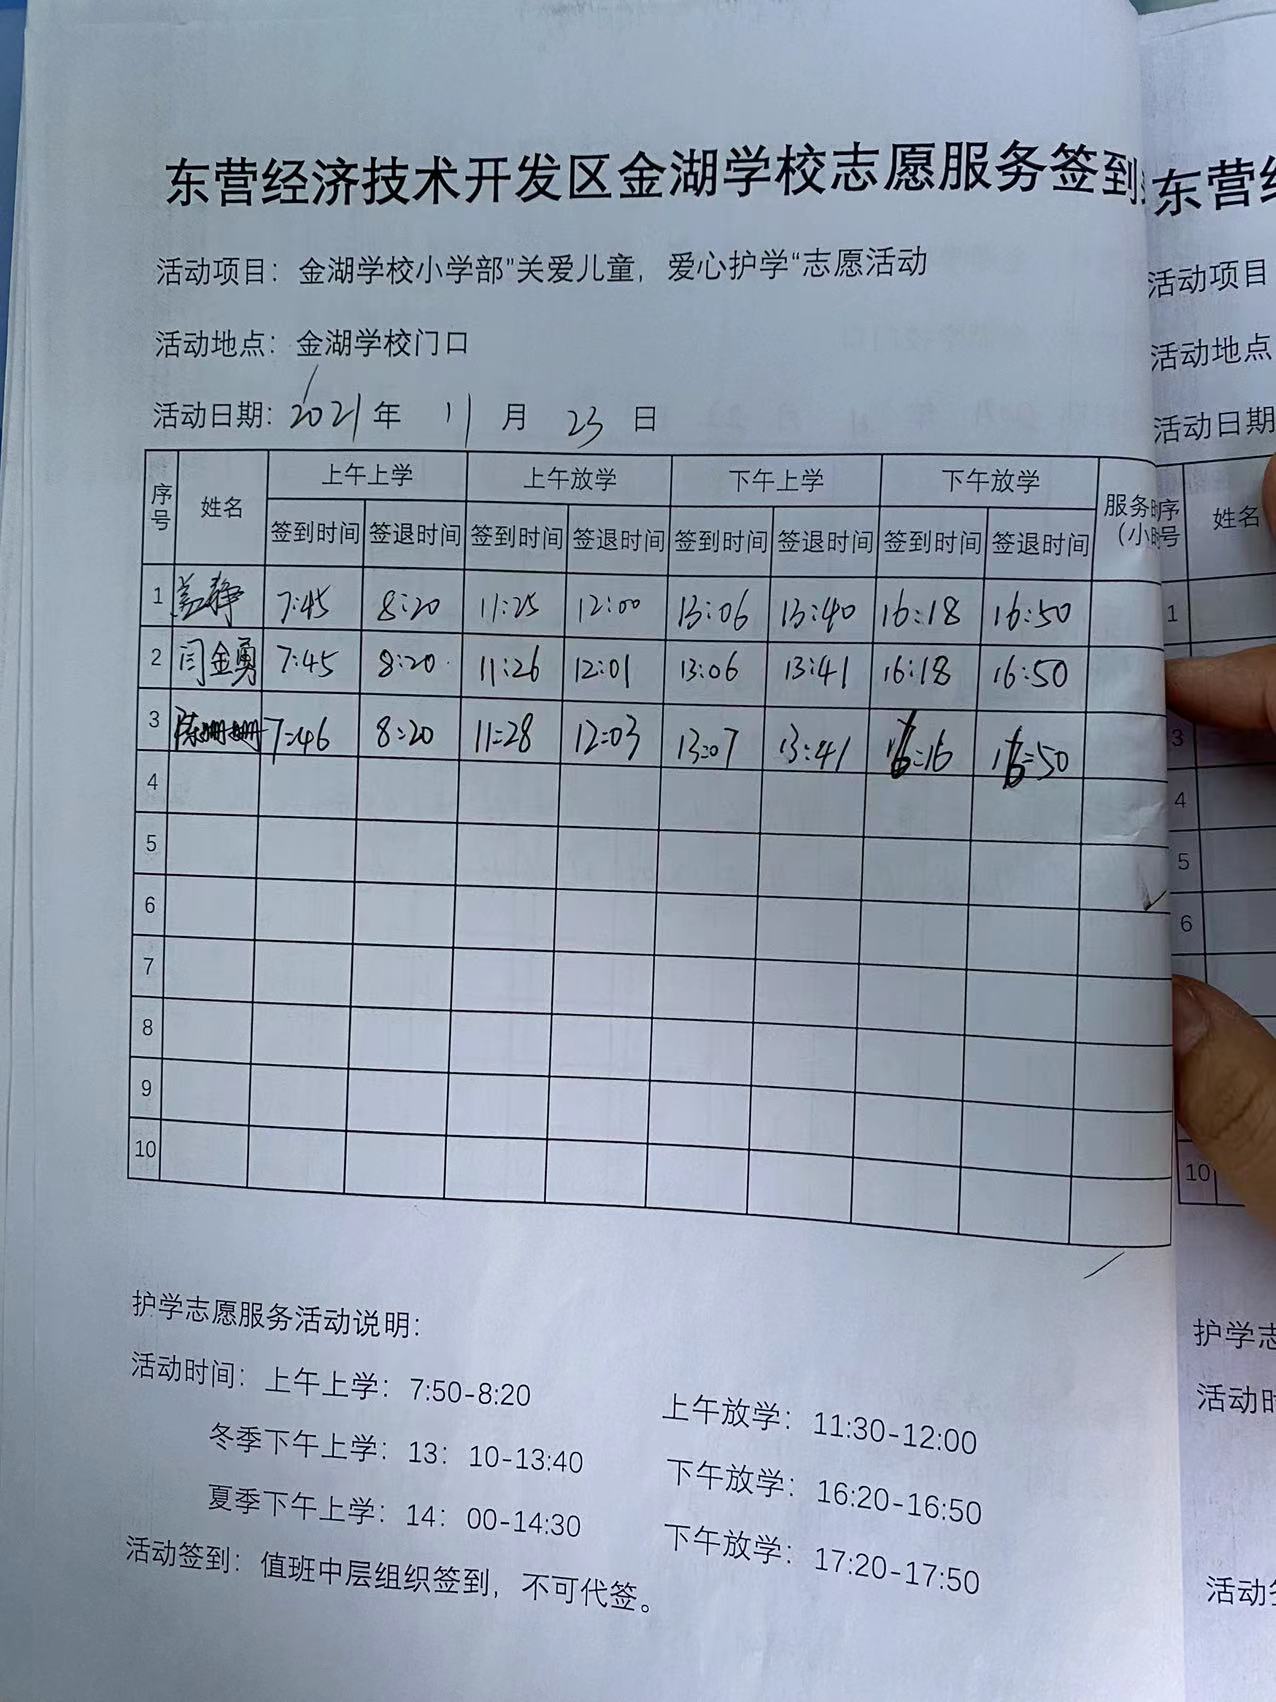 东营经济技术开发区金湖学校志愿服务签到
活动项目：金湖学校小学部"关爱儿童，爱心护学“志愿活动
活动地点：金湖学校门口
活动日期：2021年 11 月 23 日
序号 姓名 上午上学 上午放学 下午上学 下午放学 服务
（小
签到时间 签退时间 签到时间 签退时间 签到时间 签退时间 签到时间 签退时间
1 静 7:45 8:20 11:25 12:00 13:06 13:40 16:18 16:50
2 闫金勇 7:45 8:20 11:26 12:01 13:06 13:41 16:18 16:50
3 陈姗姗 7:46 8:20 11:28 12:03 13:07 13:41 16:16 16:50
4
5
6
7
8
9
10
护学志愿服务活动说明：
活动时间：上午上学：7:50-8:20 上午放学：11:30-12:00
冬季下午上学：13：10-13:40 下午放学：16:20-16:50
夏季下午上学：14：00-14:30 下午放学：17:20-17:50
活动签到：值班中层组织签到，不可代签。
东营
活动项目
活动地点
活动日期
序号 姓名
1
3
4
5
6
10
护学志
活动时
活动